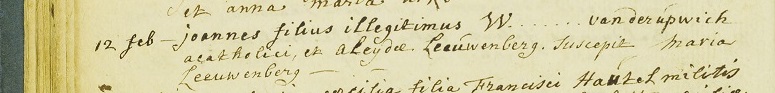 et anna maria
12 feb - joannes filius illegitimus W....... vanderupwich
acatholici, et aleydæ Leeuwenberg. Suscepit Maria
Leeuwenberg —
filia Francisci Hautel militis